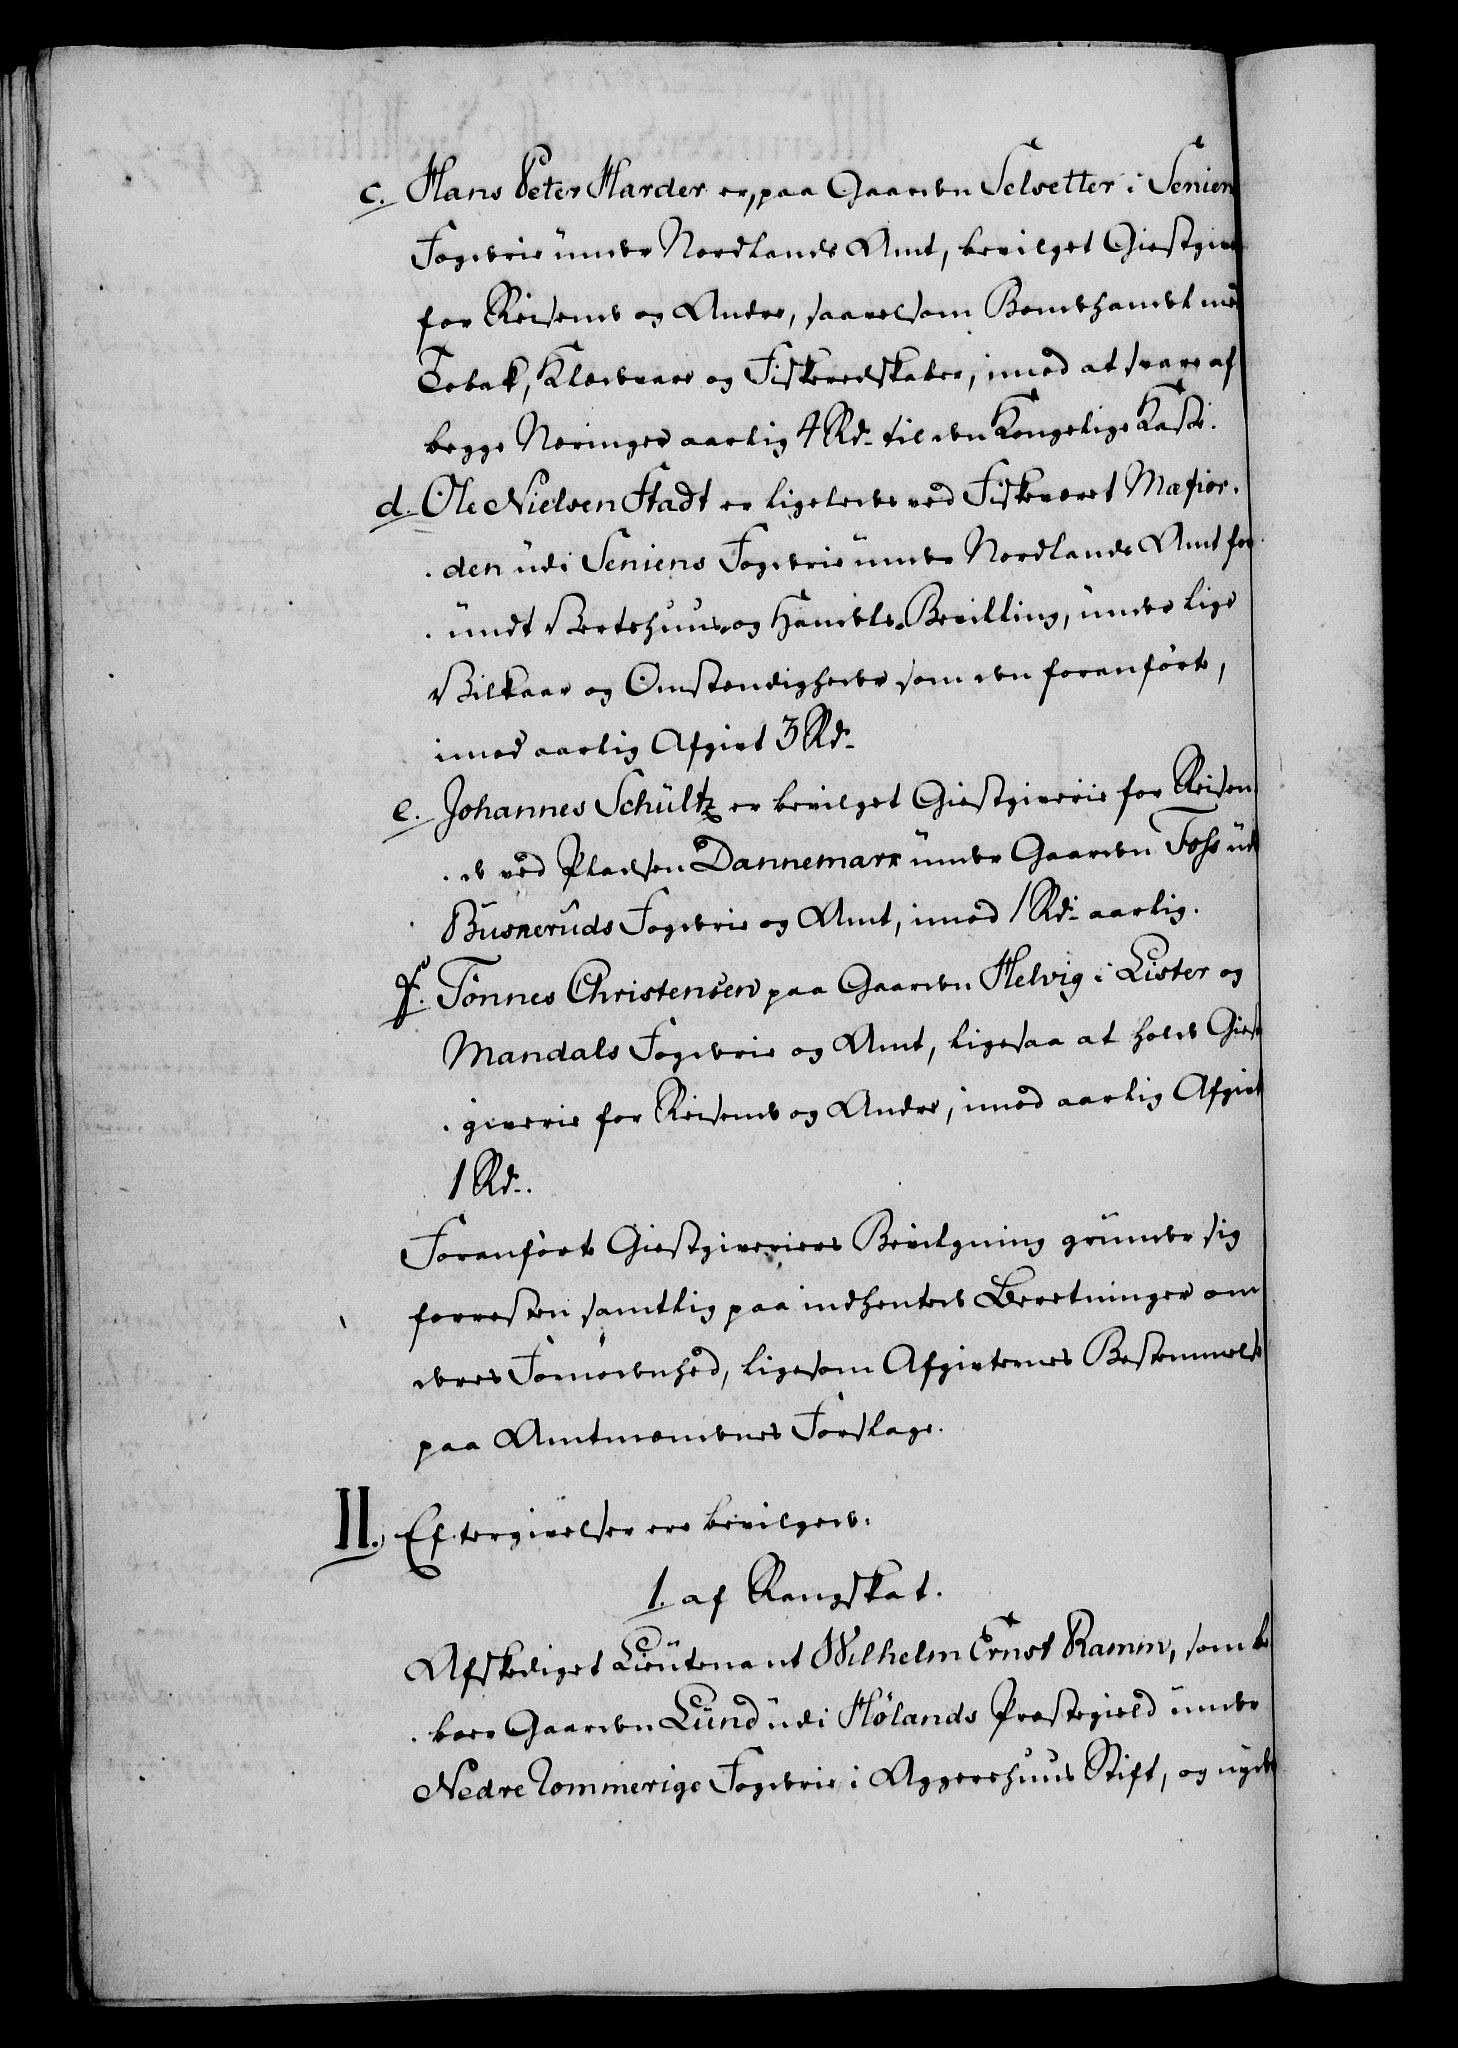 c. Hans Peter Harder er, paa Gaarden Selvetter i Senien
Fogderie under Nordlands Amt, bevilget Giestgive
for Reisende og Andre, saavelsom Bondehandel med
Tobak, Klædevare og Fiskeredskaber, imod at svare af
begge Næringer aarlig 4 Rd. til den Kongelige Kasse.
d. Ole Nielsen Stadt er ligeledes ved Fiskeværet Mafior-
den udi Seniens Fogderie under Nordlands Amt for
undt Vertshuus og Handels Bevilling, under lige
Vilkaar og Omstændigheder som den foranførte,
imod aarlig Afgivt 3 Rd.
e. Johannes Schültz er bevilget Giestgiverie for Reisen-
de ved Pladsen Dannemarx under Gaarden Foss ud
Buskeruds Fogderie og Amt, imod 1 Rd. aarlig.
f. Tönnes Christensen paa Gaarden Helvig i Lister og
Mandals Fogderie og Amt, ligesaa at holde Giest
giverie for Reisende og Andre, imod aarlig Afgivt
1 Rd.
Foranførte Giestgiveriers Bevilgning grunder sig
forresten samtlig paa indhentede Beretninger om
deres Fornødenhed, ligesom Afgivternes Bestemmelse
paa Amtmændenes Forslage.
II. Eftergivelser ere bevilgede.
1. af Rangskat.
Afskediget Lieutenant Wilhelm Ernst Ramm, som be-
boer Gaarden Lund udi Hølands Præstegield under
Nedre Rommerige Fogderie i Aggershuus Stift, og nyde